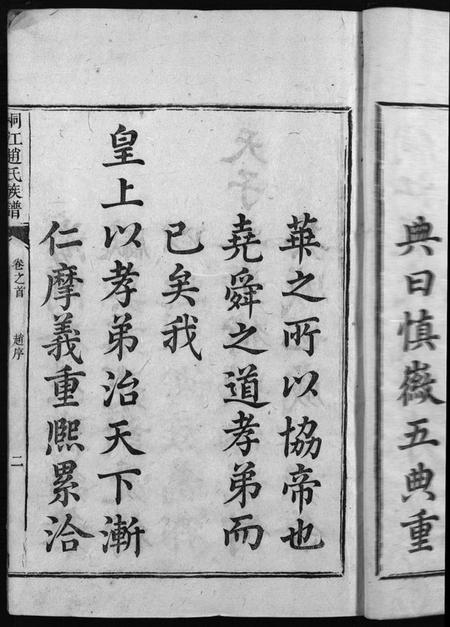 典曰慎徽五典重
華之所以協帝也
堯舜之道孝弟而
已矣我
皇上以孝弟治天下漸
仁摩義重熙累洽
桐江趙氏族譜
卷之首
趙序
二